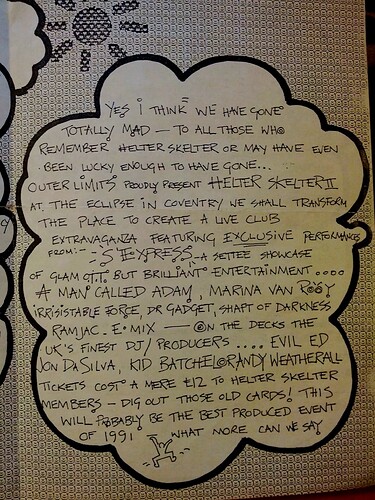 YES I THINK WE HAVE GONE
TOTALLY MAD — TO ALL THOSE WHO
REMEMBER HELTER SKELTER OR MAY HAVE EVEN
BEEN LUCKY ENOUGH TO HAVE GONE...
OUTER LIMITS PROUDLY PRESENT HELTER SKELTER II
AT THE ECLIPSE IN COVENTRY WE SHALL TRANSFORM
THE PLACE TO CREATE A LIVE CLUB
EXTRAVAGANZA FEATURING EXCLUSIVE PERFORMANCES
FROM:- S'EXPRESS - A SETTEE SHOWCASE
OF GLAM O.T.T. BUT BRILLIANT ENTERTAINMENT....
A MAN CALLED ADAM, MARINA VAN ROOY
IRRISISTABLE FORCE, DR GADGET, SHAPT OF DARKNESS
RAMJAC. E. MIX — ON THE DECKS THE
UK'S FINEST DJ/PRODUCERS .... EVIL ED
JON DASILVA, KID BATCHELOR ANDY WEATHERALL
TICKETS COST A MERE £12 TO HELTER SKELTER
MEMBERS — DIG OUT THOSE OLD CARDS! THIS
WILL PROBABLY BE THE BEST PRODUCED EVENT
OF 1991 WHAT MORE CAN WE SAY